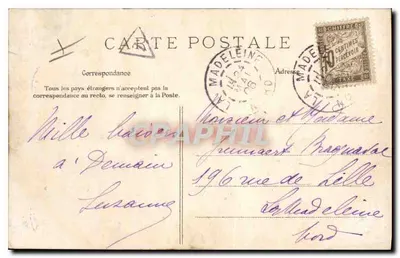 CARTE POSTALE
Correspondance
Adresse
Tous les pays étrangers n'acceptent pas la
correspondance au recto, se renseigner à la Poste.
LA MADELEINE
LA MADELEINE
CHIFFRE
CENTIMES
À PERCEVOIR
TAXE
Mille baisers
à Demain
Suzanne
Monsieur et Madame
196 rue de Lille
La Madeleine
Nord